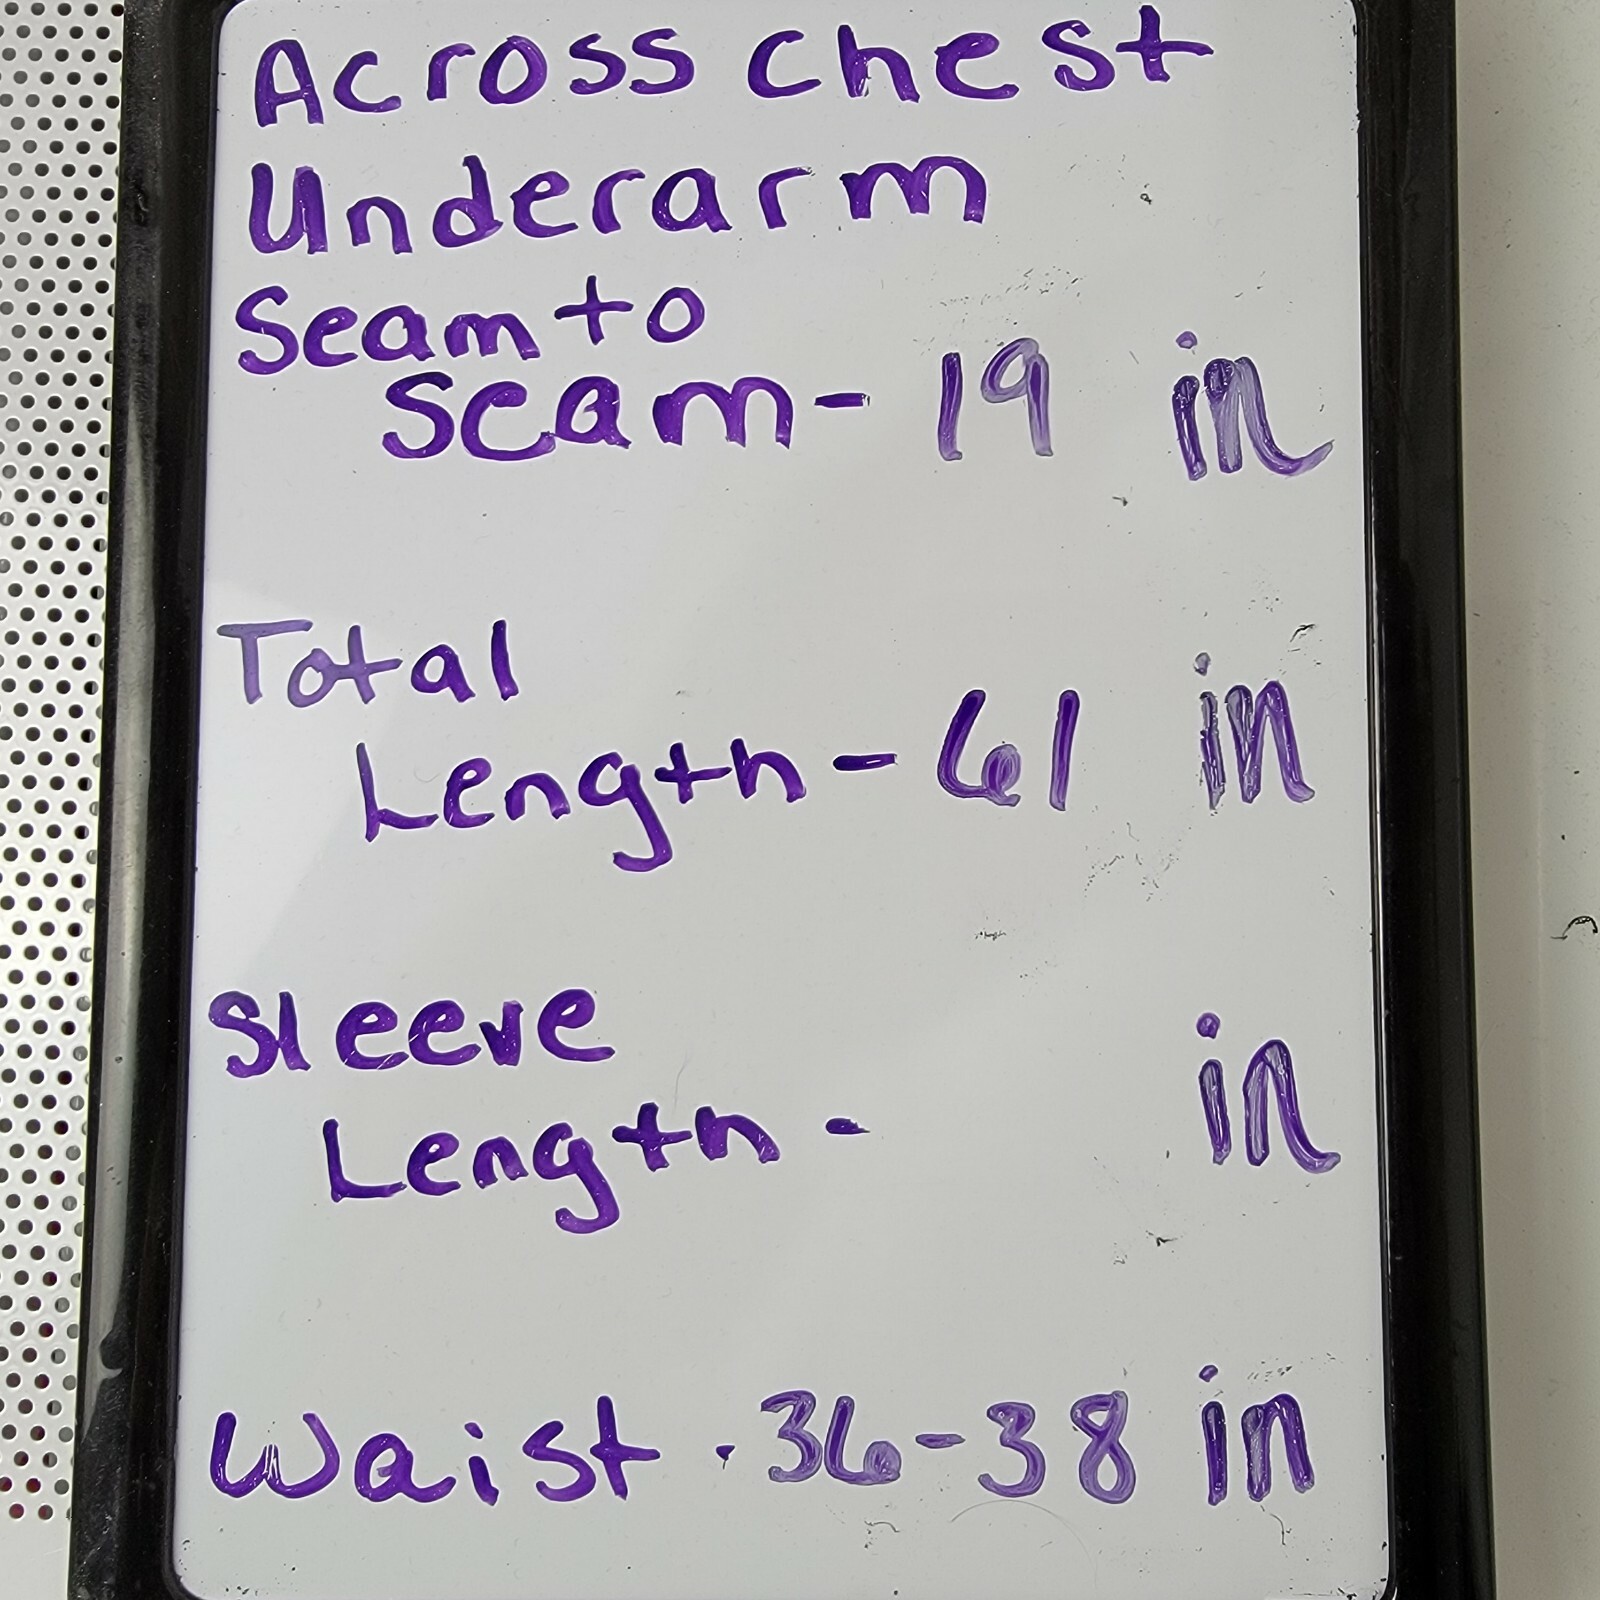 Across chest
Underarm
Seam to
seam - 19 in
Total
Length - 61 in
Sleeve
Length - in
Waist . 36-38 in